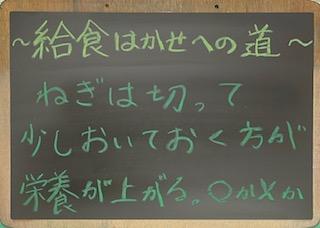 ～給食はかせへの道～
ねぎは切って
少しおいておく方が
栄養が上がる。○か×か